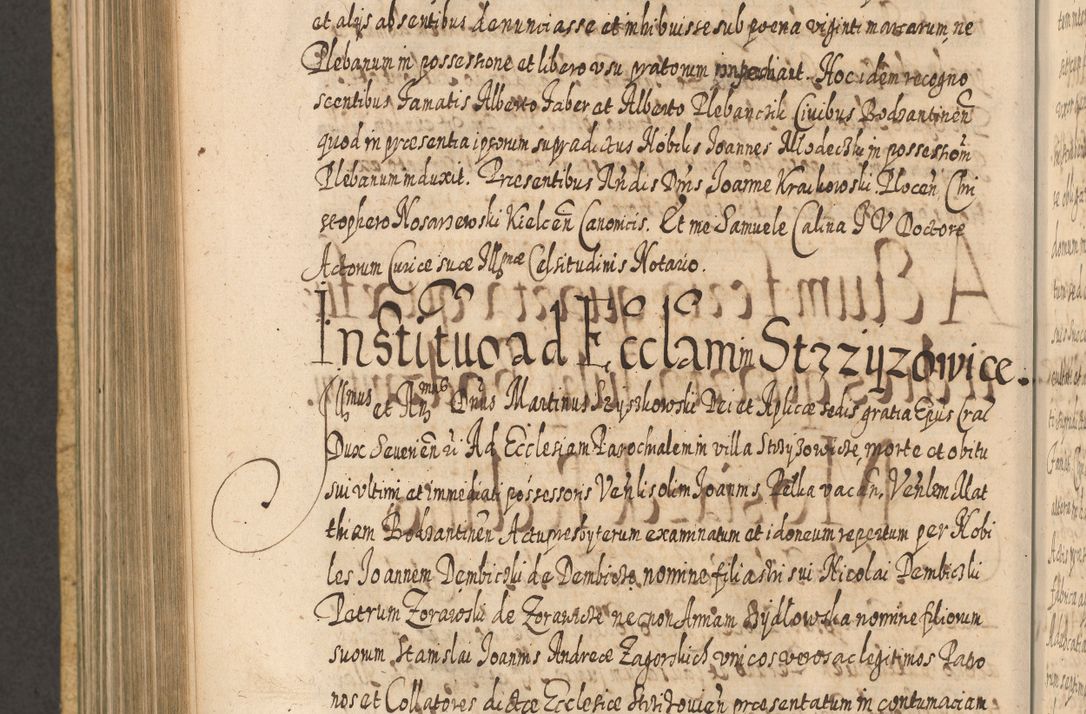 et alys absentibus denunciasse et inhibuisse sub poena viginti marcarum ne
Plebanum in possessione et libero usu pratorum impediant. Hoc idem recogno
scentibus Famatis Alberto Faber et Alberto Plebanczik Civibus Bodzantinen̄
quod in præsentia ipsorum supradictus Nobilis Joannes Mlodecki in possession̄
Plebanum induxit. Præsentibus Rn̄dis Dn̄is Joanne Kraikowski Plocen̄ Chri
stophero Nosarzewski Kielcen̄ Canonicis. Et me Samuele Calina I V Doctore
Actorum Curiæ suæ Illmæ Celsitudinis Notario.
Institutio ad Ecclam in Strzyzowice.
Illmus et Rmus Dn̄us Martinus Szyszkowski Dei et Aplicæ sedis gratia Epus Crac
Dux Severien̄ ad Ecclesiam Parochialem in villa Strzyzowice morte et obitu
sui ultimi et immediati possessoris Ven̄lis olim Joannis Pella vacan̄. Ven̄lem Mat
thiam Bodzantinen̄ Actu presbyterum examinatum et idoneum repertum per Nobi
les Joannem Dembicki de Dembicze nomine filiastri sui Nicolai Dembicki
Petrum Zorawski de Zorawice necnon Annam Bydłowska nomine filiorum
suorum Stanislai Joannis Andreæ Zagorskich unicos veros ac legitimos Patro
nos et Collatores dictæ Ecclesiæ præsentatum in contumaciam